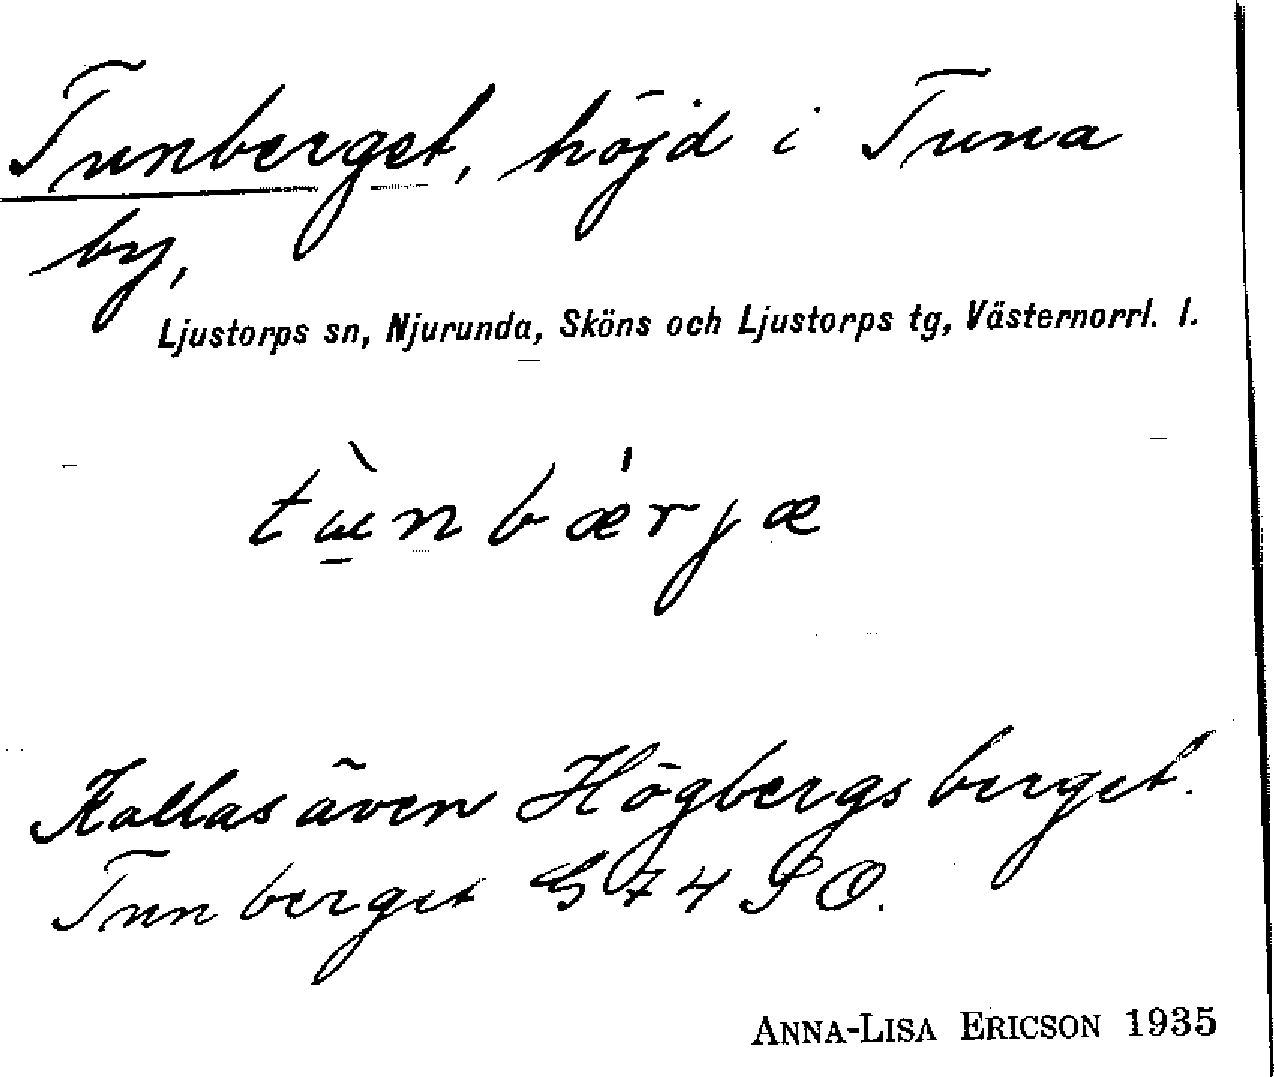 Tunberget, höjd i Tuna
by,
Ljustorps sn, Njurunda, Sköns och Ljustorps tg, Västernorrl. l.
tù̲nbǽrjæ
Kallas även Högbergsberget.
Tunberget G 74 S O.
ANNA-LISA ERICSON 1935